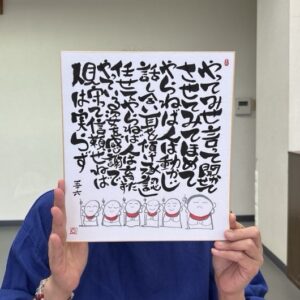 やってみせ言って聞かせて
させてみてほめて
やらねば人は動かじ
話し合い耳を傾け承認し
任せてやらねば人は育たず
やっている姿を感謝で
見守って信頼せねば
人は実らず